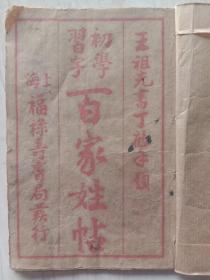 王祖光書丁龍手題
初學
習字
百家姓帖
上海福祿壽書局發行